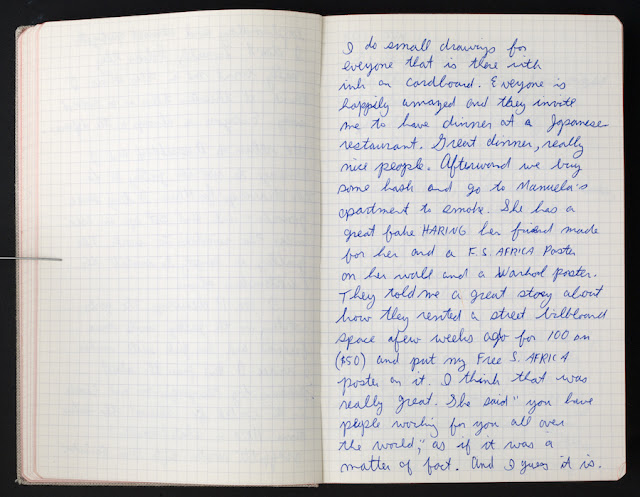 I do small drawings for
everyone that is there with
ink on cardboard. Everyone is
happily amazed and they invite
me to have dinner at a Japanese
restaurant. Great dinner, really
nice people. Afterward we buy
some hash and go to Manuela's
apartment to smoke. She has a
great fake HARING her friend made
for her and a F.S. AFRICA Poster
on her wall and a Warhol poster.
They told me a great story about
how they rented a street billboard
space a few weeks ago for 100 dm
($50) and put my Free S. AFRICA
poster on it. I think that was
really great. She said "you have
people working for you all over
the world," as if it was a
matter of fact. And I guess it is.